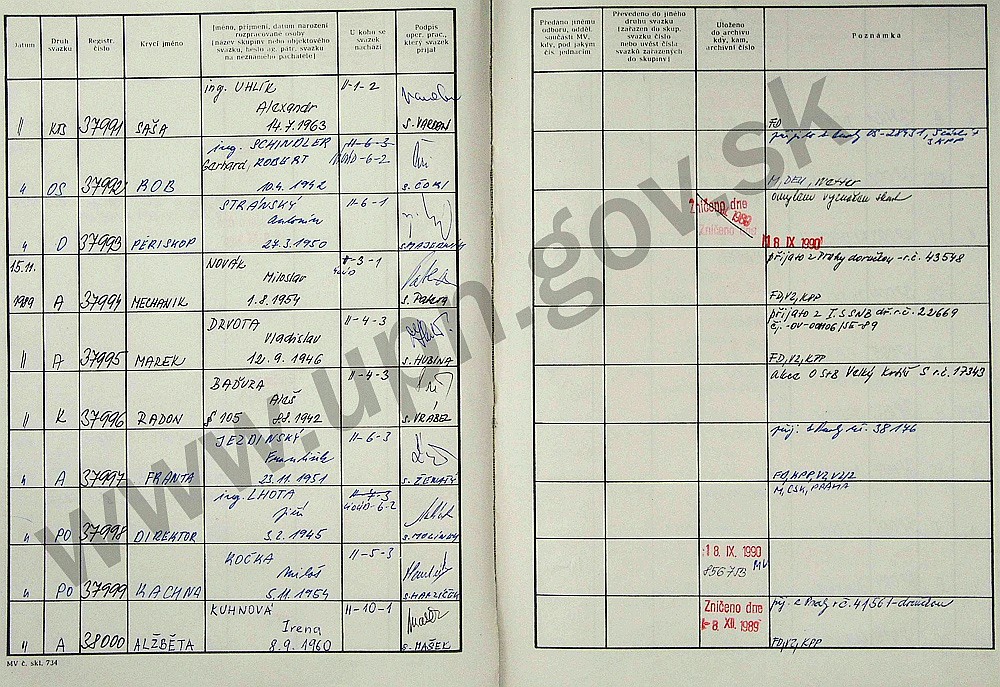 Datum
Druh svazku
Registr. číslo
Krycí jméno
Jméno, příjmení, datum narození
rozpracované osoby
(název skupiny nebo objektového
svazku, heslo ag. pátr. svazku
na neznámého pachatele)
U koho se
svazek
nachází
Podpis
oper. prac.,
který svazek
přijal
Předáno jinému
odboru, odděl.
součásti MV,
kdy, pod jakým
čís. jednacím
Převedeno do jiného
druhu svazku
(zařazen do skup.
svazku číslo
nebo uvést čísla
svazků zařazených
do skupiny)
Uloženo
do archivu
kdy, kam,
archivní číslo
Poznámka
ing. UHLÍK
Alexandr
" KTS 37991 SAŠA 14.7.1963 II-1-2
FO
ing. SCHINDLER
Gerhard, ROBERT
" OS 37992 BOB 10.4.1942 II-6-3
M, DEU, Wetter
STRÁNSKÝ
Antonín
" D 37993 PERISKOP 27.3.1950 II-6-1 s. MAJERNÍK
Zničeno dne
18 IX 1990
omylem vyznačen
15.11.
1989 A 37994 MECHANIK
NOVÁK
Miloslav
1.8.1954
-3-1
s. Patera
přijato z Prahy doručen - r.č. 43548
FO, V2, KPP
DRVOTA
Vladislav
" A 37995 MAREK 12.9.1946 II-4-3 s. HUBINA
přijato z I. S SNB dř. r.č. 22669
čj. -OV-00106/SE-89
FO, V2, KPP
BAĎURA
Aleš
" K 37996 RADON § 105 8.8.1942 II-4-3 s. VRÁBEL
akce O StB Velký S r.č. 17343
JEZDINSKÝ
František
" A 37997 FRANTA 23.11.1951 II-6-3
příj. z Prahy r.č. 38176
FO, KPP, V2, V2/2
ing. LHOTA
Jiří
" PO 37998 DIREKTOR 3.2.1945 II-7-3
M, CSK, PRAHA
KOČKA
Miloš
" PO 37999 KACHNA 5.11.1954 II-5-3
18. IX. 1990
MV
KUHNOVÁ
Irena
" A 38000 ALŽBĚTA 8.9.1960 II-10-1 s. MAŠEK
Zničeno dne
-8. XII. 1989
příj. z Prahy r.č. 41561 - doručen
FO, V2, KPP
MV č. skl. 734
www.upn.gov.sk